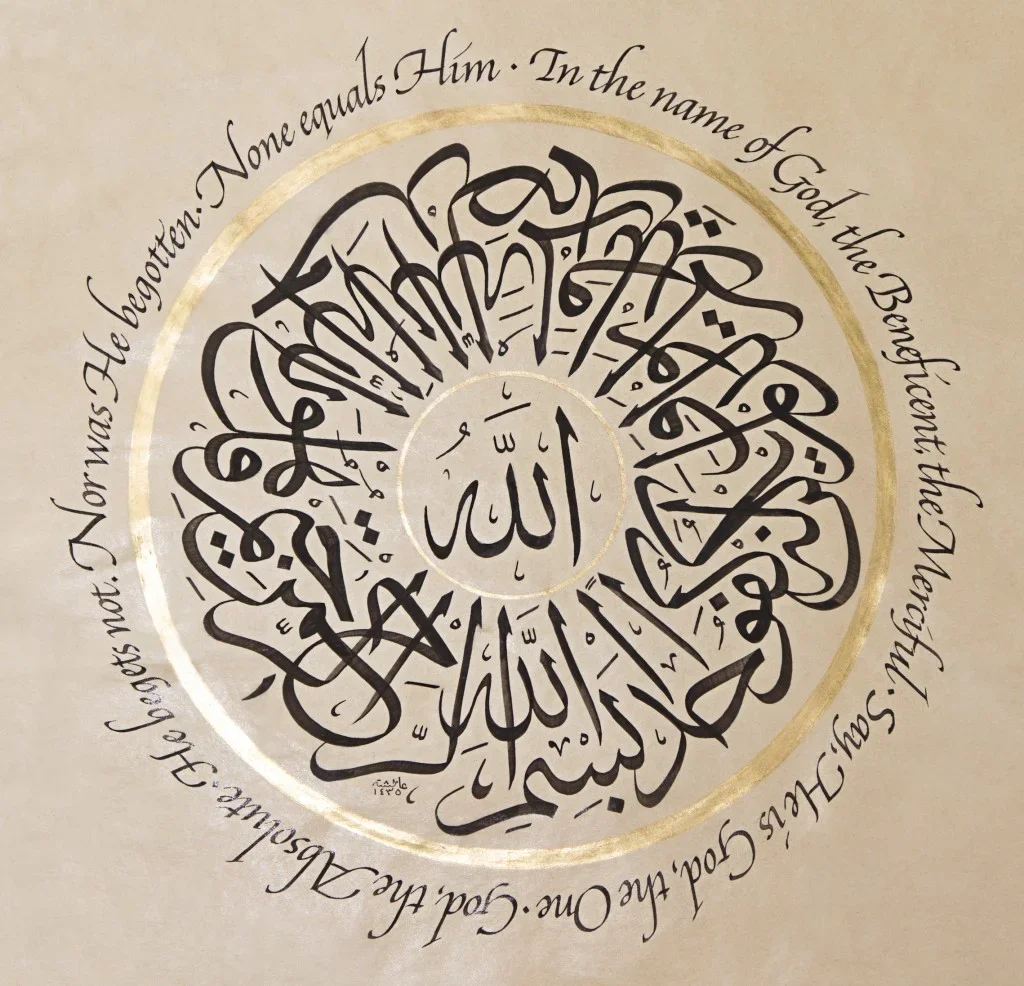 In the name of God, the Beneficent, the Merciful. Say, He is God, the One · God, the Absolute. He begets not. Nor was He begotten. None equals Him ·
بسم الله الرحمن الرحيم قل هو الله أحد الله الصمد لم يلد ولم يولد ولم يكن له كفوا أحد
الله
عائشة
١٤٣٥